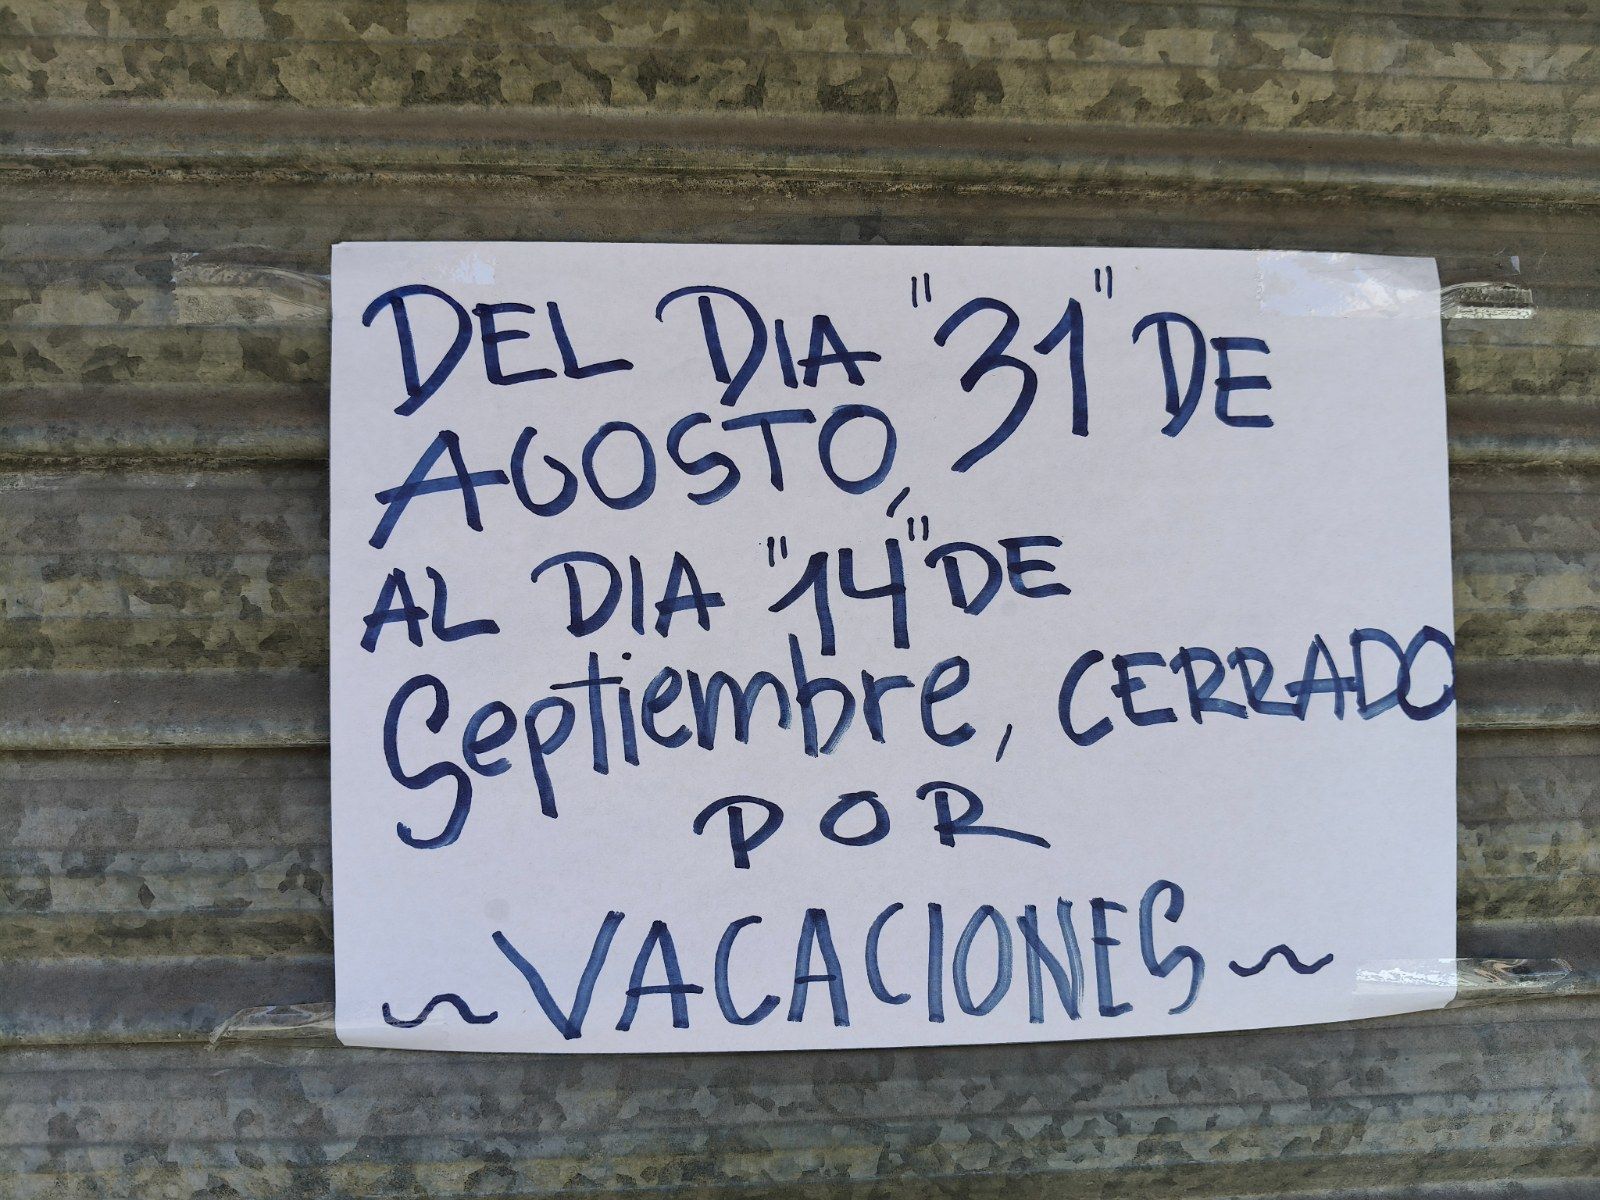 DEL DIA "31" DE
AGOSTO,
AL DIA "14" DE
Septiembre, CERRADO
POR
~VACACIONES~